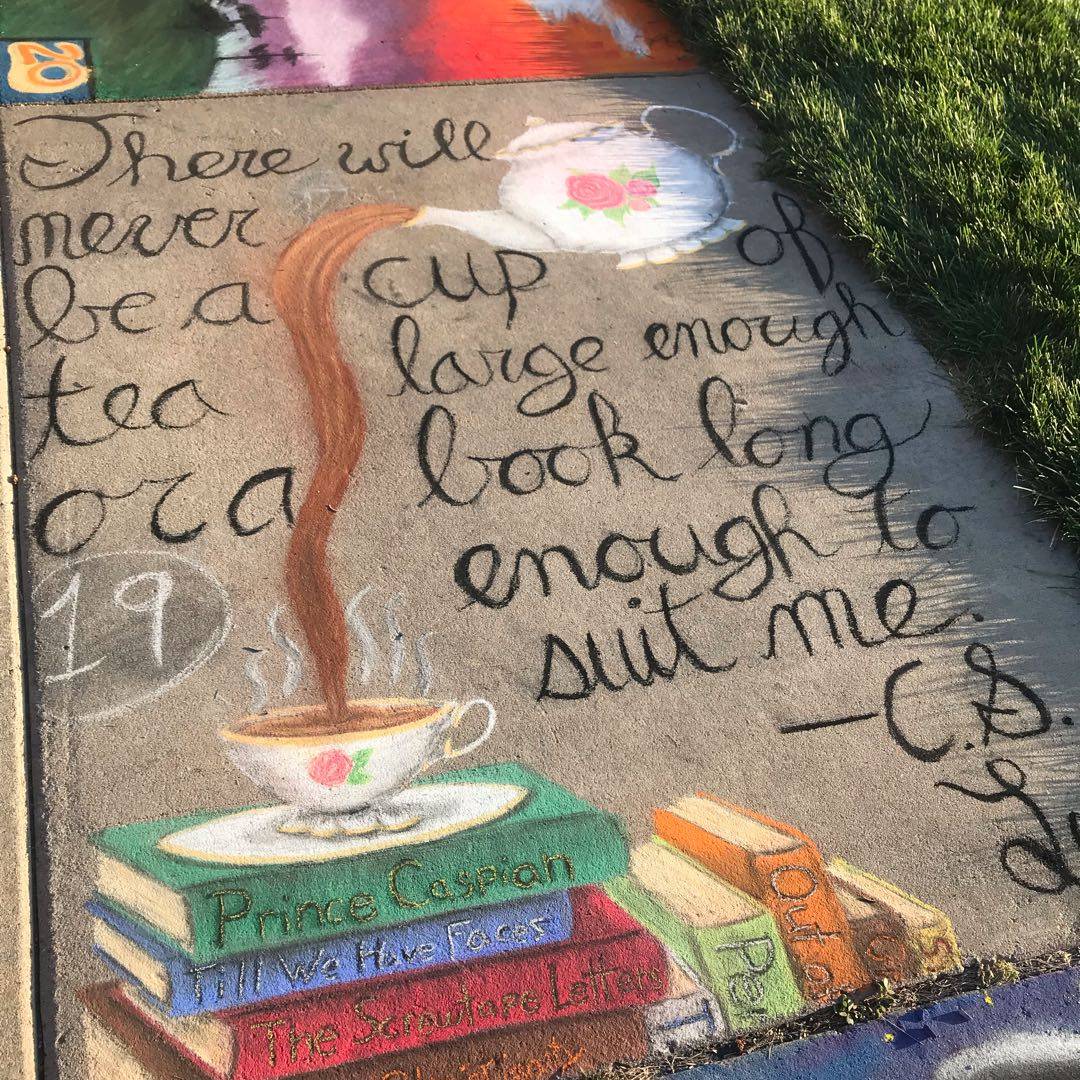 20
There will
never
be a cup of
tea large enough
or a book long
enough to
suit me.
—C.S.
19
Prince Caspian
Till We Have Faces
The Screwtape Letters
Out o
Per